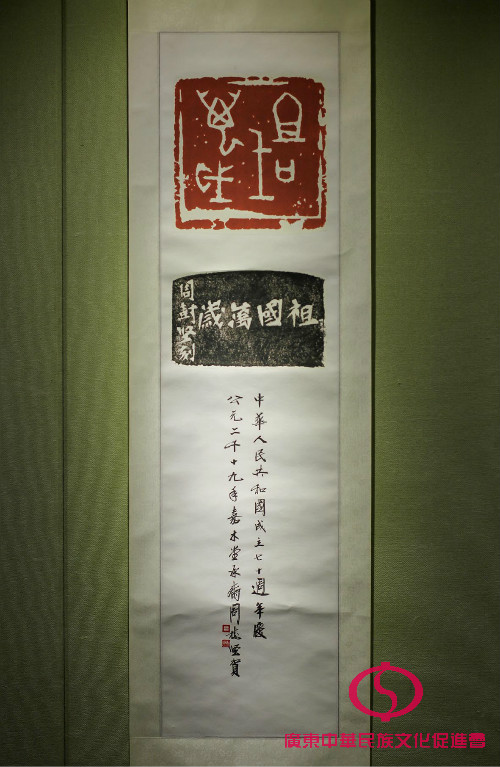 祖國萬歲
周樹堅刻
中華人民共和國成立七十週年慶
公元二千十九年嘉木堂周樹堅賀
廣東中華民族文化促進會